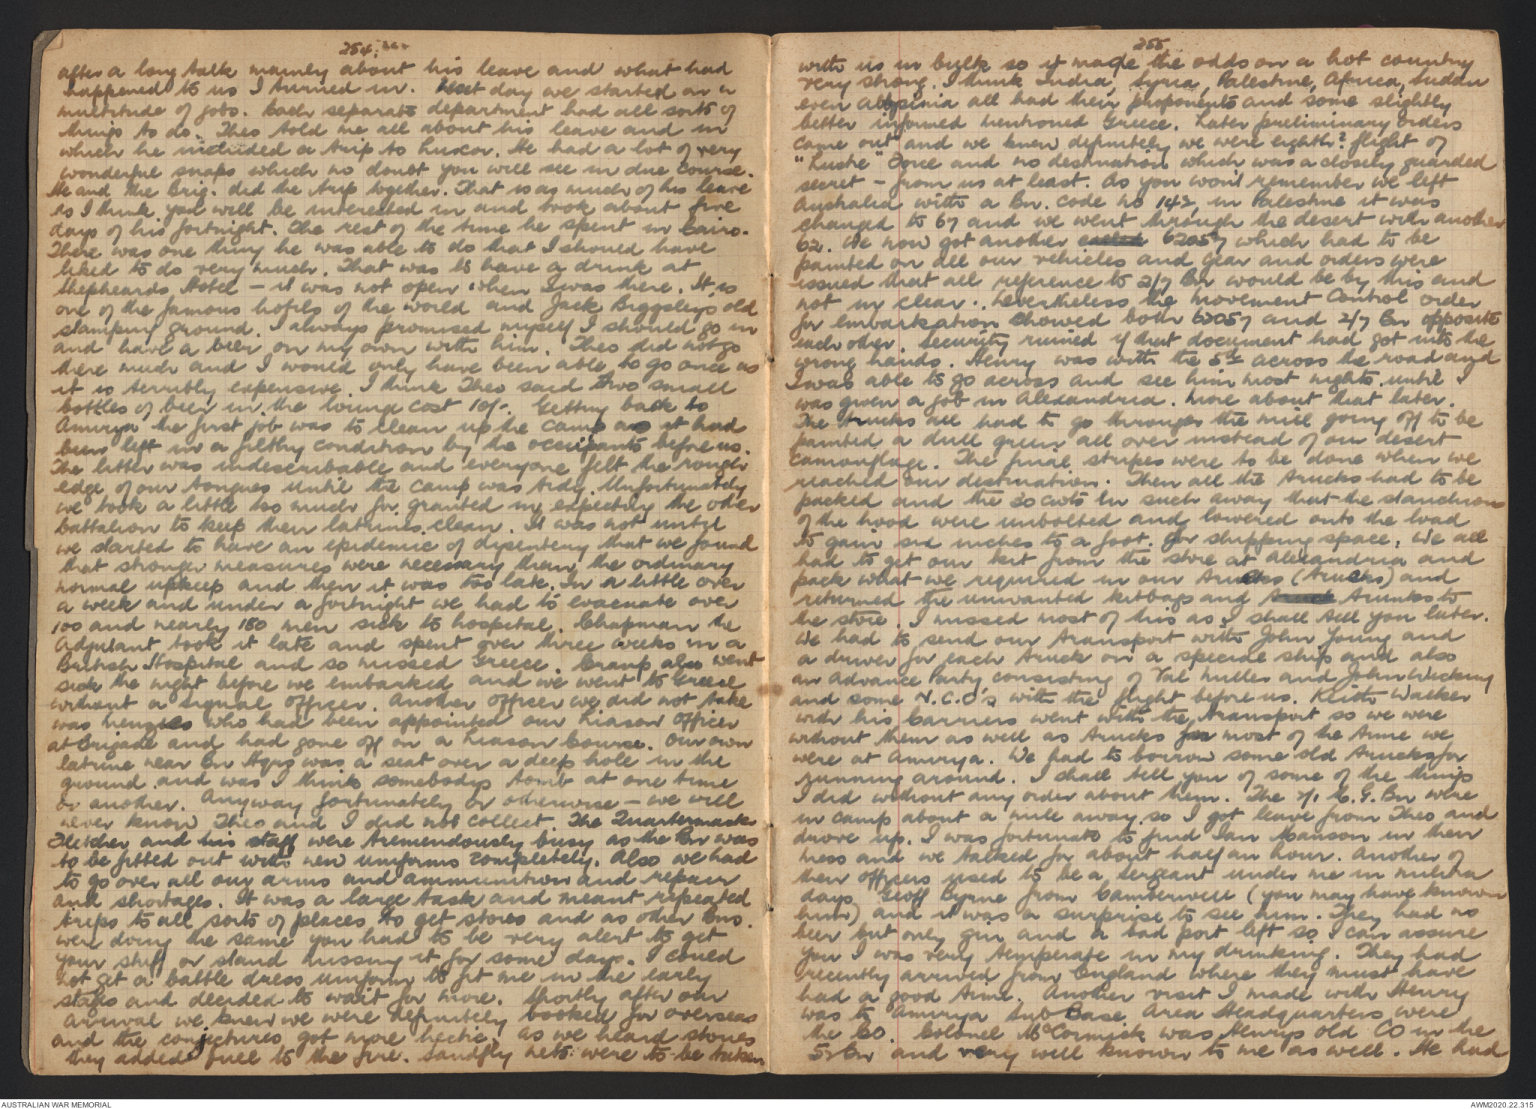 254.
after a long talk mainly about his leave and what had
happened to us I turned in. Next day we started on a
multitude of jobs. Each separate department had all sorts of
things to do. Theo told me all about his leave and in
which he included a trip to Luxor. He had a lot of very
wonderful snaps which no doubt you will see in due course.
He and the Brig. did the trip together. That is as much of his leave
as I think you will be interested in and took about five
days of his fortnight. The rest of the time he spent in Cairo.
There was one thing he was able to do that I should have
liked to do very much. That was to have a drink at
Shepheards Hotel - it was not open when I was there. It is
one of the famous hotels of the world and Jack Biggsley's old
stamping ground. I always promised myself I should go in
and have a beer on my own with him. Theo did not go
there much and I would only have been able to go once as
it is terribly expensive. I think Theo said two small
bottles of beer in the lounge cost 10/-. Getting back to
Amirya the first job was to clean up the camp as it had
been left in a filthy condition by the occupants before us.
The litter was indescribable and everyone felt the rough
edge of our tongues until the camp was tidy. Unfortunately
we took a little too much for granted in expecting the other
battalion to keep their latrines clean. It was not until
we started to have an epidemic of dysentery that we found
that stronger measures were necessary than the ordinary
normal upkeep and then it was too late. In a little over
a week and under a fortnight we had to evacuate over
100 and nearly 150 men sick to hospital. Chapman the
Adjutant took it late and spent over three weeks in a
British Hospital and so missed Greece. Cramp also went
sick the night before we embarked and we went to Greece
without a signal officer. Another officer we did not take
was Menzies who had been appointed our liason officer
at Brigade and had gone off on a liason course. Our own
latrine near Bn Hqrs was a seat over a deep hole in the
ground and was I think somebodys tomb at one time
or another. Anyway fortunately or otherwise - we will
never know Theo and I did not collect. The Quartermaster
Fletcher and his staff were tremendously busy as the Bn was
to be fitted out with new uniforms completely. Also we had
to go over all our arms and ammunition and repair
and shortages. It was a large task and meant repeated
trips to all sorts of places to get stores and as other Bns.
were doing the same you had to be very alert to get
your stuff or stand missing it for some days. I could
not get a battle dress uniform to fit me in the early
stages and decided to wait for more. Shortly after our
arrival we knew we were definitely booked for overseas
and the conjectures got more hectic, as we heard stories
they added fuel to the fire. Sandfly nets were to be taken
255
with us in bulk so it made the odds on a hot country
very strong. I think India, Syria, Palestine, Africa, Sudan
even Abysinia all had their proponents and some slightly
better informed mentioned Greece. Later preliminary orders
came out and we knew definitely we were eighth? flight of
"Lustre" Force and no destination which was a closely guarded
secret - from us at least. As you won't remember we left
Australia with a Bn. code no 142, in Palestine it was
changed to 67 and we went through the desert with another
62. We now got another 62057 which had to be
painted on all our vehicles and gear and orders were
issued that all reference to 2/7 Bn would be by this and
not in clear. Nevertheless the Movement Control order
for embarkation showed both 62057 and 2/7 Bn opposite
each other. Security ruined if that document had got into the
wrong hands. Henry was with the 5th across the road and
I was able to go across and see him most nights until I
was given a job in Alexandria. More about that later.
The trucks all had to go through the mill going off to be
painted a dull green all over instead of our desert
camouflage. The final stripes were to be done when we
reached our destination. Then all the trucks had to be
packed and the 30 cwts in such away that the stanchions
of the hood were unbolted and lowered onto the load
to gain six inches to a foot for shipping space. We all
had to get our kit from the store at Alexandria and
pack what we required in our trucks (trucks) and
returned the unwanted kitbags and trunks to
the store. I missed most of this as I shall tell you later.
We had to send our transport with John Young and
a driver for each truck on a special ship and also
an Advance Party consisting of Val Miller and John Wicking
and some N.C.O's with the flight before us. Keith Walker
with his carriers went with the transport so we were
without them as well as trucks for most of the time we
were at Amirya. We had to borrow some old trucks for
running around. I shall tell you of some of the things
I did without any order about them. The 2/1 M.G. Bn were
in camp about a mile away so I got leave from Theo and
drove up. I was fortunate to find Ian Manson in their
mess and we talked for about half an hour. Another of
their officers used to be a sergeant under me in militia
days Geoff Byrne from Camberwell (you may have known
him) and it was a surprise to see him. They had no
beer but only gin and a bad port left so I can assure
you I was very temperate in my drinking. They had
recently arrived from England where they must have
had a good time. Another visit I made with Henry
was to Amirya Sub Base Area Headquarters were
the CO. Colonel McCormick was Henrys old CO in the
52 Bn and very well known to me as well. He had
AUSTRALIAN WAR MEMORIAL
AWM2020.22.315